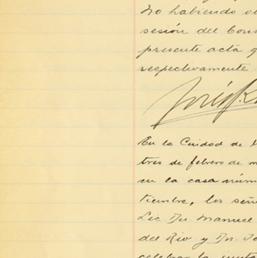 No habiendo
sesión del Con
presente acta q
respectivamente
En la Ciudad de
tres de febrero de m
en la casa núm
tiembre, los señ
Lic. Don Manuel
del Rio y Dn. Jo
celebrar la junta